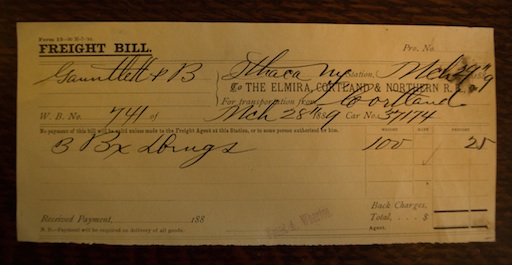 FREIGHT BILL.
Pro. No.
Gauntlett & B
Ithaca NY Station, Mch 29 1889
To THE ELMIRA, CORTLAND & NORTHERN R. R.
For transportation from Cortland
W. B. No. 741 of Mch 28 1889 Car No. 37174
No payment of this bill will be valid unless made to the Freight Agent at this Station, or to some person authorized by him.
WEIGHT RATE
3 Bx Drugs 100 25
Back Charges,
Received Payment, 188 Total, . . . . $
N. B.—Payment will be required on delivery of all goods. Agent.